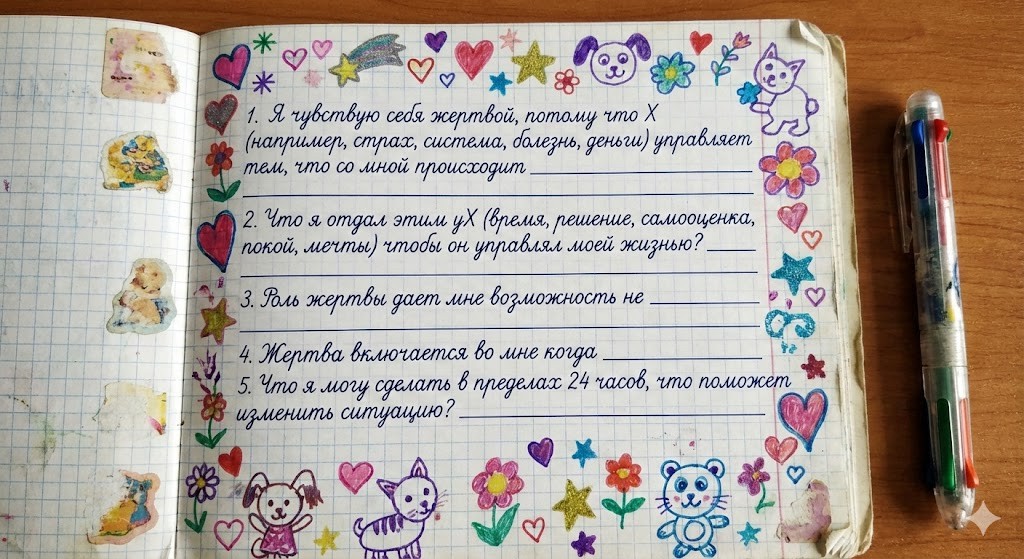 1. Я чувствую себя жертвой, потому что X
(например, страх, система, болезнь, деньги) управляет
тем, что со мной происходит ____
____
2. Что я отдал этим уХ (время, решение, самооценка,
покой, мечты) чтобы он управлял моей жизнью? ____
____
3. Роль жертвы дает мне возможность не ____
____
4. Жертва включается во мне когда ____
5. Что я могу сделать в пределах 24 часов, что поможет
изменить ситуацию? ____